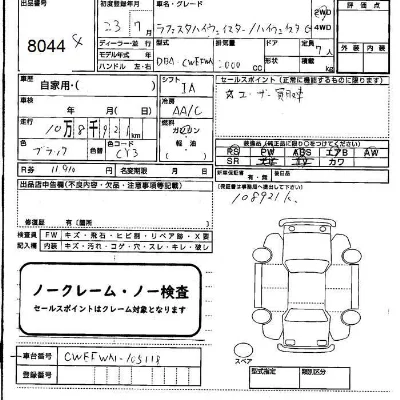 出品店
初度登録年月
車名・グレード
評価点
8044
23年7月
ラフェスタハイウェイスター/ハイウェイスタ G
2WD
4WD
ディーラー・並行
型式
排気量
ドア
定員
7人
モデル年式 年
ハンドル 左・右
DBA-CWEFWN
2000 CC
形状
積載 kg
外装
内装
車歴
自家用・( )
シフト
IA
セールスポイント(正常に機能するものに限り)
車検
年 月(日)
冷房
AA/C
ユーザー買取車
走行
10万8千921km
燃料
ガソリン
軽油
( )
装備品(純正品に限り○をつけてください)
RS PW ABS エアB AW
SR ナビ TV カワ
色
ブラック
色替
色コード
CY3
R券
11,910
名変期限 月 日
新車保証書 有・無
後日品
出品店申告欄(不良内容・欠品・注意事項等記載)
(保証書は事務局へ提出して下さい)
108921K
修復歴 有(箇所 )
検査員
記入欄
FW キズ・飛石・ヒビ割・リペア跡・X要
内装 キズ・汚れ・コゲ・穴・スレ・キレ・破レ
ノークレーム・ノー検査
セールスポイントはクレーム対象となります
車台番号
CWEFWN-105118
登録番号
スペア
型式指定
類別区分